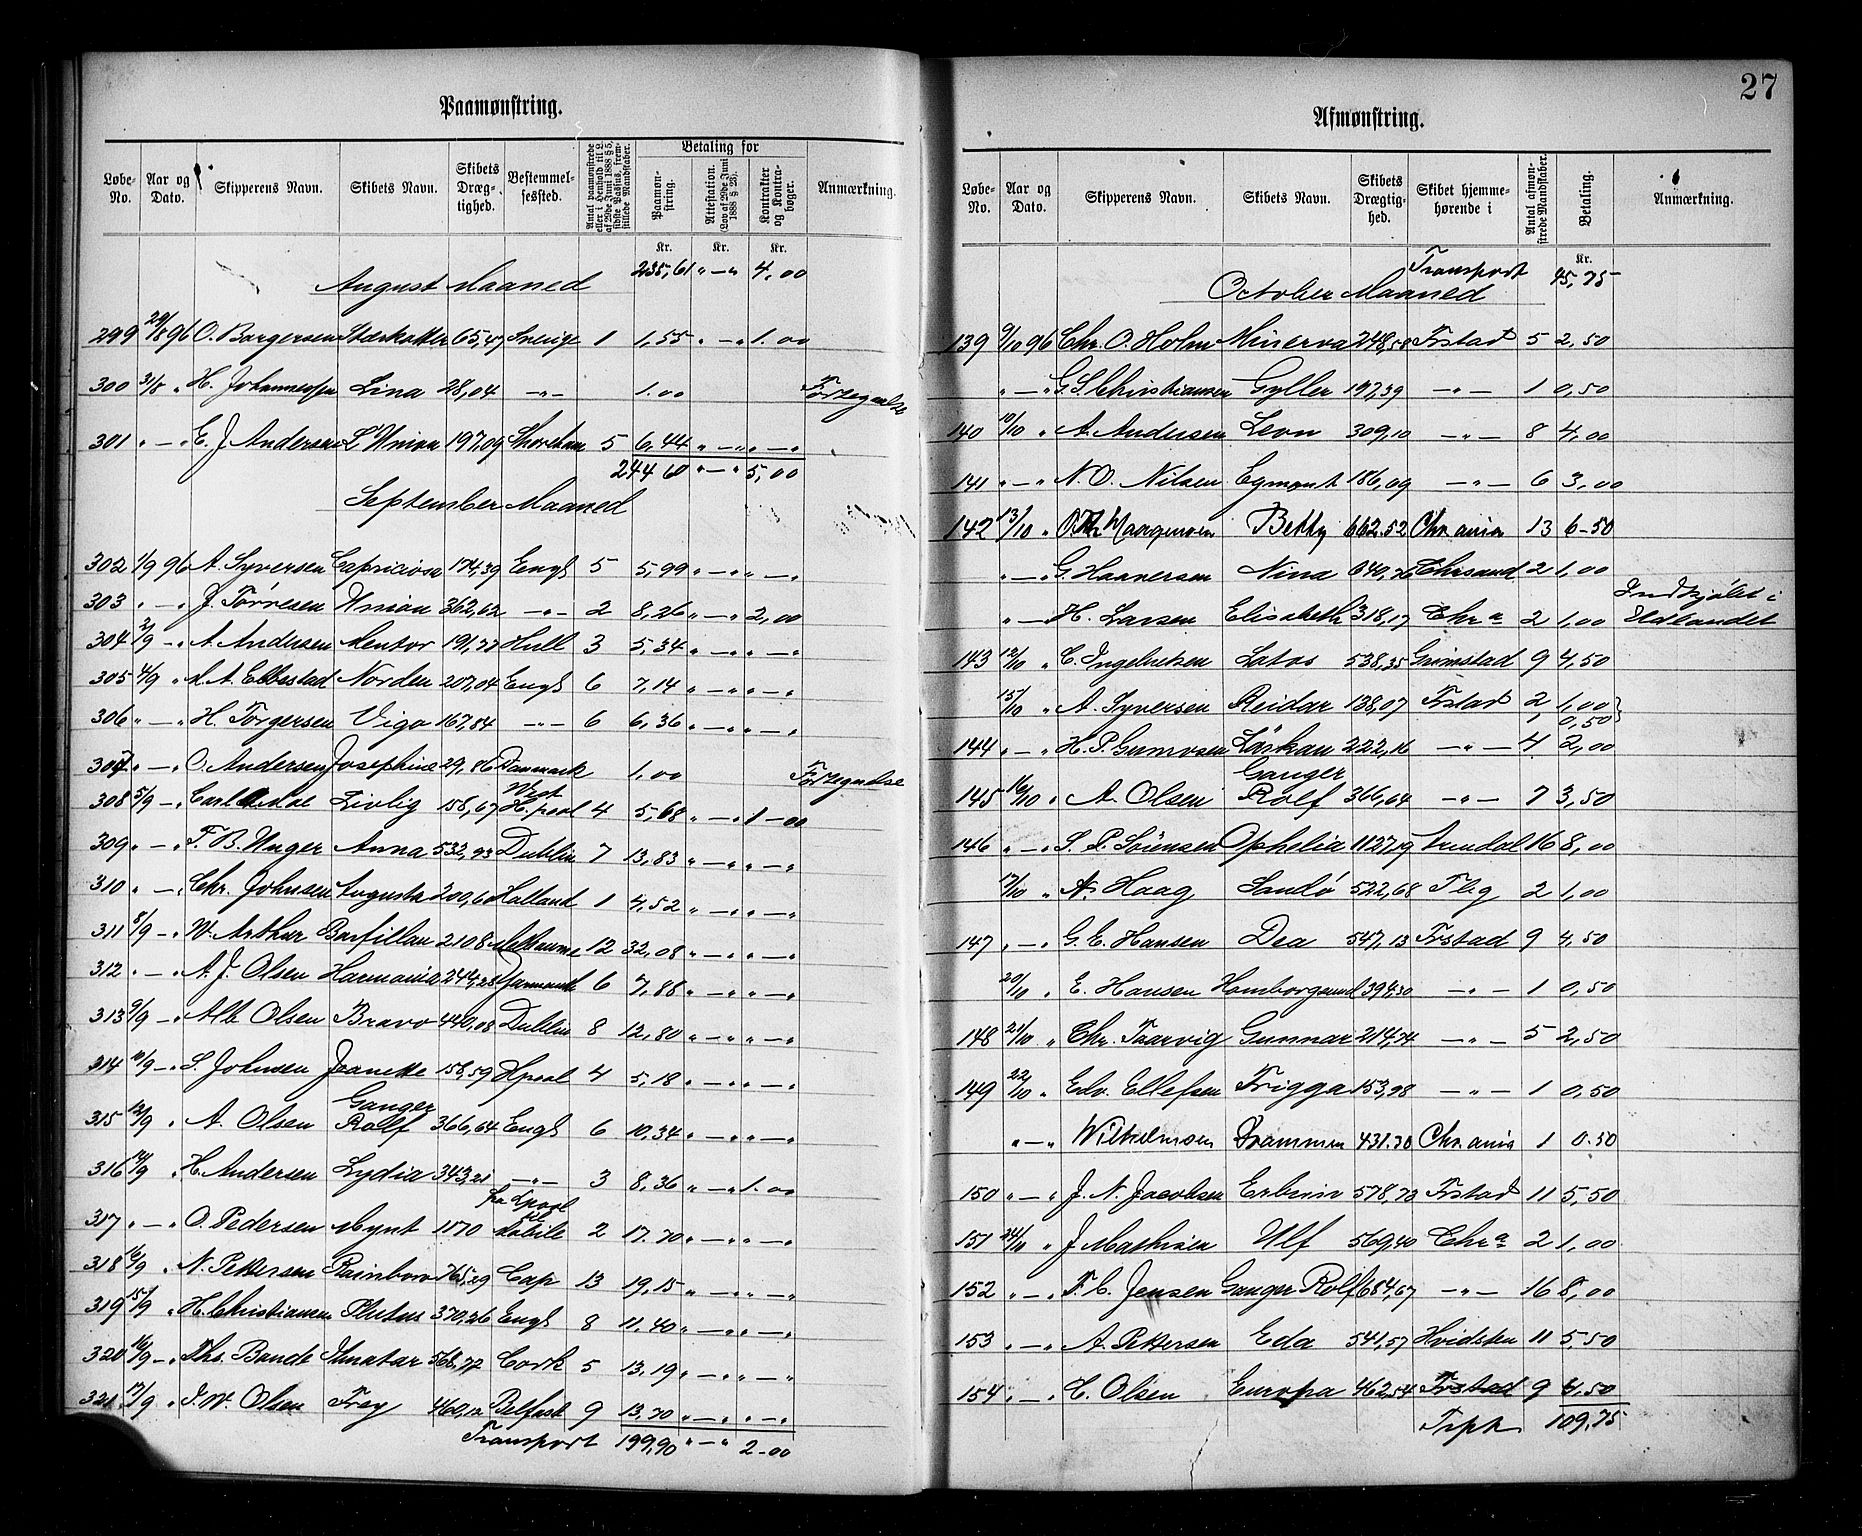 Paamønstring.
Løbe-No. Aar og Dato. Skipperens Navn. Skibets Navn. Skibets Dræg-tighed. Bestemmel-sessted. Antal paamønstrede eller i Henhold til L. af 29de Juni 1888 § 5, sidste Passus, frem-stillede Mandskaber. Betaling for Paamøn-string. Attestation. (Lov af 29de Juni 1888 § 23). Kontrakter og Kontra-bøger. Anmærkning.
Kr. Kr. Kr.
August Maaned 235,61 " — " 4,00
299 29/8 96 O. Borgersen Stærkodder 65,47 Sverige 1 1,55 " — " 1.00
300 31/8 " H. Johannessen Lina 28,04 — " — 1.00 Forregnelse
301 " — " E. J. Andersen L'Union 197,09 Shoreham 5 6,44 " — " " — "
244 60 " — " 5,00
September Maaned
302 1/9 96 A. Syversen Capriciosa 174,39 Engl 5 5,99 " — " " — "
303 " — " J. Torresen Union 362,62 — " — 2 8,26 " — " 2,00
304 2/9 — " A. Andersen Mentor 191,77 Hull 3 5,34 " — " " — "
305 4/9 " M. A. Ebbestad Norden 207,04 Engl 6 7,14 " — " " — "
306 " — " H. Torgersen Viga 167,84 — " — 6 6,36 " — " " — "
307 " — " O. Andersen Josephine 29,86 Danmark 1,00 Forregnelse
308 5/9 — " Carl Livlig 158,67 West H.pool 4 5,68 " — " 1 — 00
309 " — " F. B. Unger Anna 532,93 Dublin 7 13,83 " — " " — "
310 " — " Chr. Johnsen Augusta 200,60 Halland 1 4,52 " — " " — "
311 8/9 — " W. Arthur Barfillan 2108 12 32,08 " — " " — "
312 " — " A. J. Olsen Harmonia 244,28 Yarmouth 6 7,88 " — " " — "
313 9/9 — " Alb Olsen Bravo 440,08 Dublin 8 12,80 " — " " — "
314 10/9 — " S. Johnsen Jeanette 158,59 Hpool 4 5,18 " — " " — "
315 12/9 " A. Olsen Ganger Rolf 366,64 Engl 6 10,34 " — " " — "
316 14/9 " H. Andersen Lydia 343,21 — " — 3 8,36 " — " 1.00
317 " — " O. Pedersen Mynt 1170 fra Lpool til Mobile 2 17.70 " — " " — "
318 14/9 " N. Pettersen Rainbow 765,29 Cap 13 19,15 " — " " — "
319 15/9 " H. Christiansen Plutus 370,26 Engl 8 11,40 " — " " — "
320 16/9 — " Ths. Bande Imatar 568,72 Cork 5 13,19 " — " " — "
321 17/9 " J. W. Olsen Frey 460,12 Belfast 9 13,70 " — " " — "
Transport 199,90 " — " 2 — 00
27
Afmønstring.
Løbe-No. Aar og Dato. Skipperens Navn. Skibets Navn. Skibets Drægtig-hed. Skibet hjemme-hørende i Antal afmøn-strede Mandskaber. Betaling. Anmærkning.
Kr.
Transport 45,75
October Maaned
139 9/10 96 Chr. O. Holm Minerva 248,58 Frstad 5 2,50
" — " G. S. Christiansen Gyller 197,39 — " — 1 0,50
140 10/10 " A. Andersen Leon 309,10 — " — 8 4,00
141 " — " N. O. Nilsen Egmont 186,09 — " — 6 3,00
142 13/10 " O Th Haagensen Betty 662.52 Chrania 13 6-50
" — " G. Haanersen Nina 640,76 Chrsand 2 1,00
" — H. Larsen Elisabeth 318,17 Chra 2 1,00 Indkjøbt i Udlandet
143 12/10 " C. Ingebretsen Latos 538,35 Grimstad 9 4,50
15/10 " A. Syversen Reidar 138,07 Frstad 2 1,00
1 0,50
144 " — " H. P. Gunvosen Lärkan 222,16 — " — 4 2,00
145 16/10 " A. Olsen Ganger Rolf 366,64 — " — 7 3,50
146 " — " S. P. Sörensen Ophelia 1127,19 Arendal 16 8,00
17/10 " A. Haag Sandö 522,68 Tbg 2 1,00
147 " — " G. E. Hansen Dea 547,13 Frstad 9 4,50
20/10 " E. Hansen Homborgsund 394,30 — " — 1 0,50
148 21/10 " Chr. Taarvig Gunnar 214,74 — " — 5 2,50
149 22/10 " Edv. Ellefsen Frigga 153,98 — " — 1 0,50
" — " Wilhelmsen Drammen 431.70 Chrania 1 0.50
150 " — " J. N. Jacobsen Erbrin 578,73 Frstad 11 5,50
151 24/10 " J. Mathisen Ulf 569,40 Chra 2 1,00
152 " — " F. C. Jensen Ganger Rolf 684,67 — " — 16 8,00
153 " — " A. Pettersen Eda 541,57 Hvidsten 11 5,50
154 " — " C. Olsen Europa 462,54 Frstad 9 4,50
Trpt 109,75